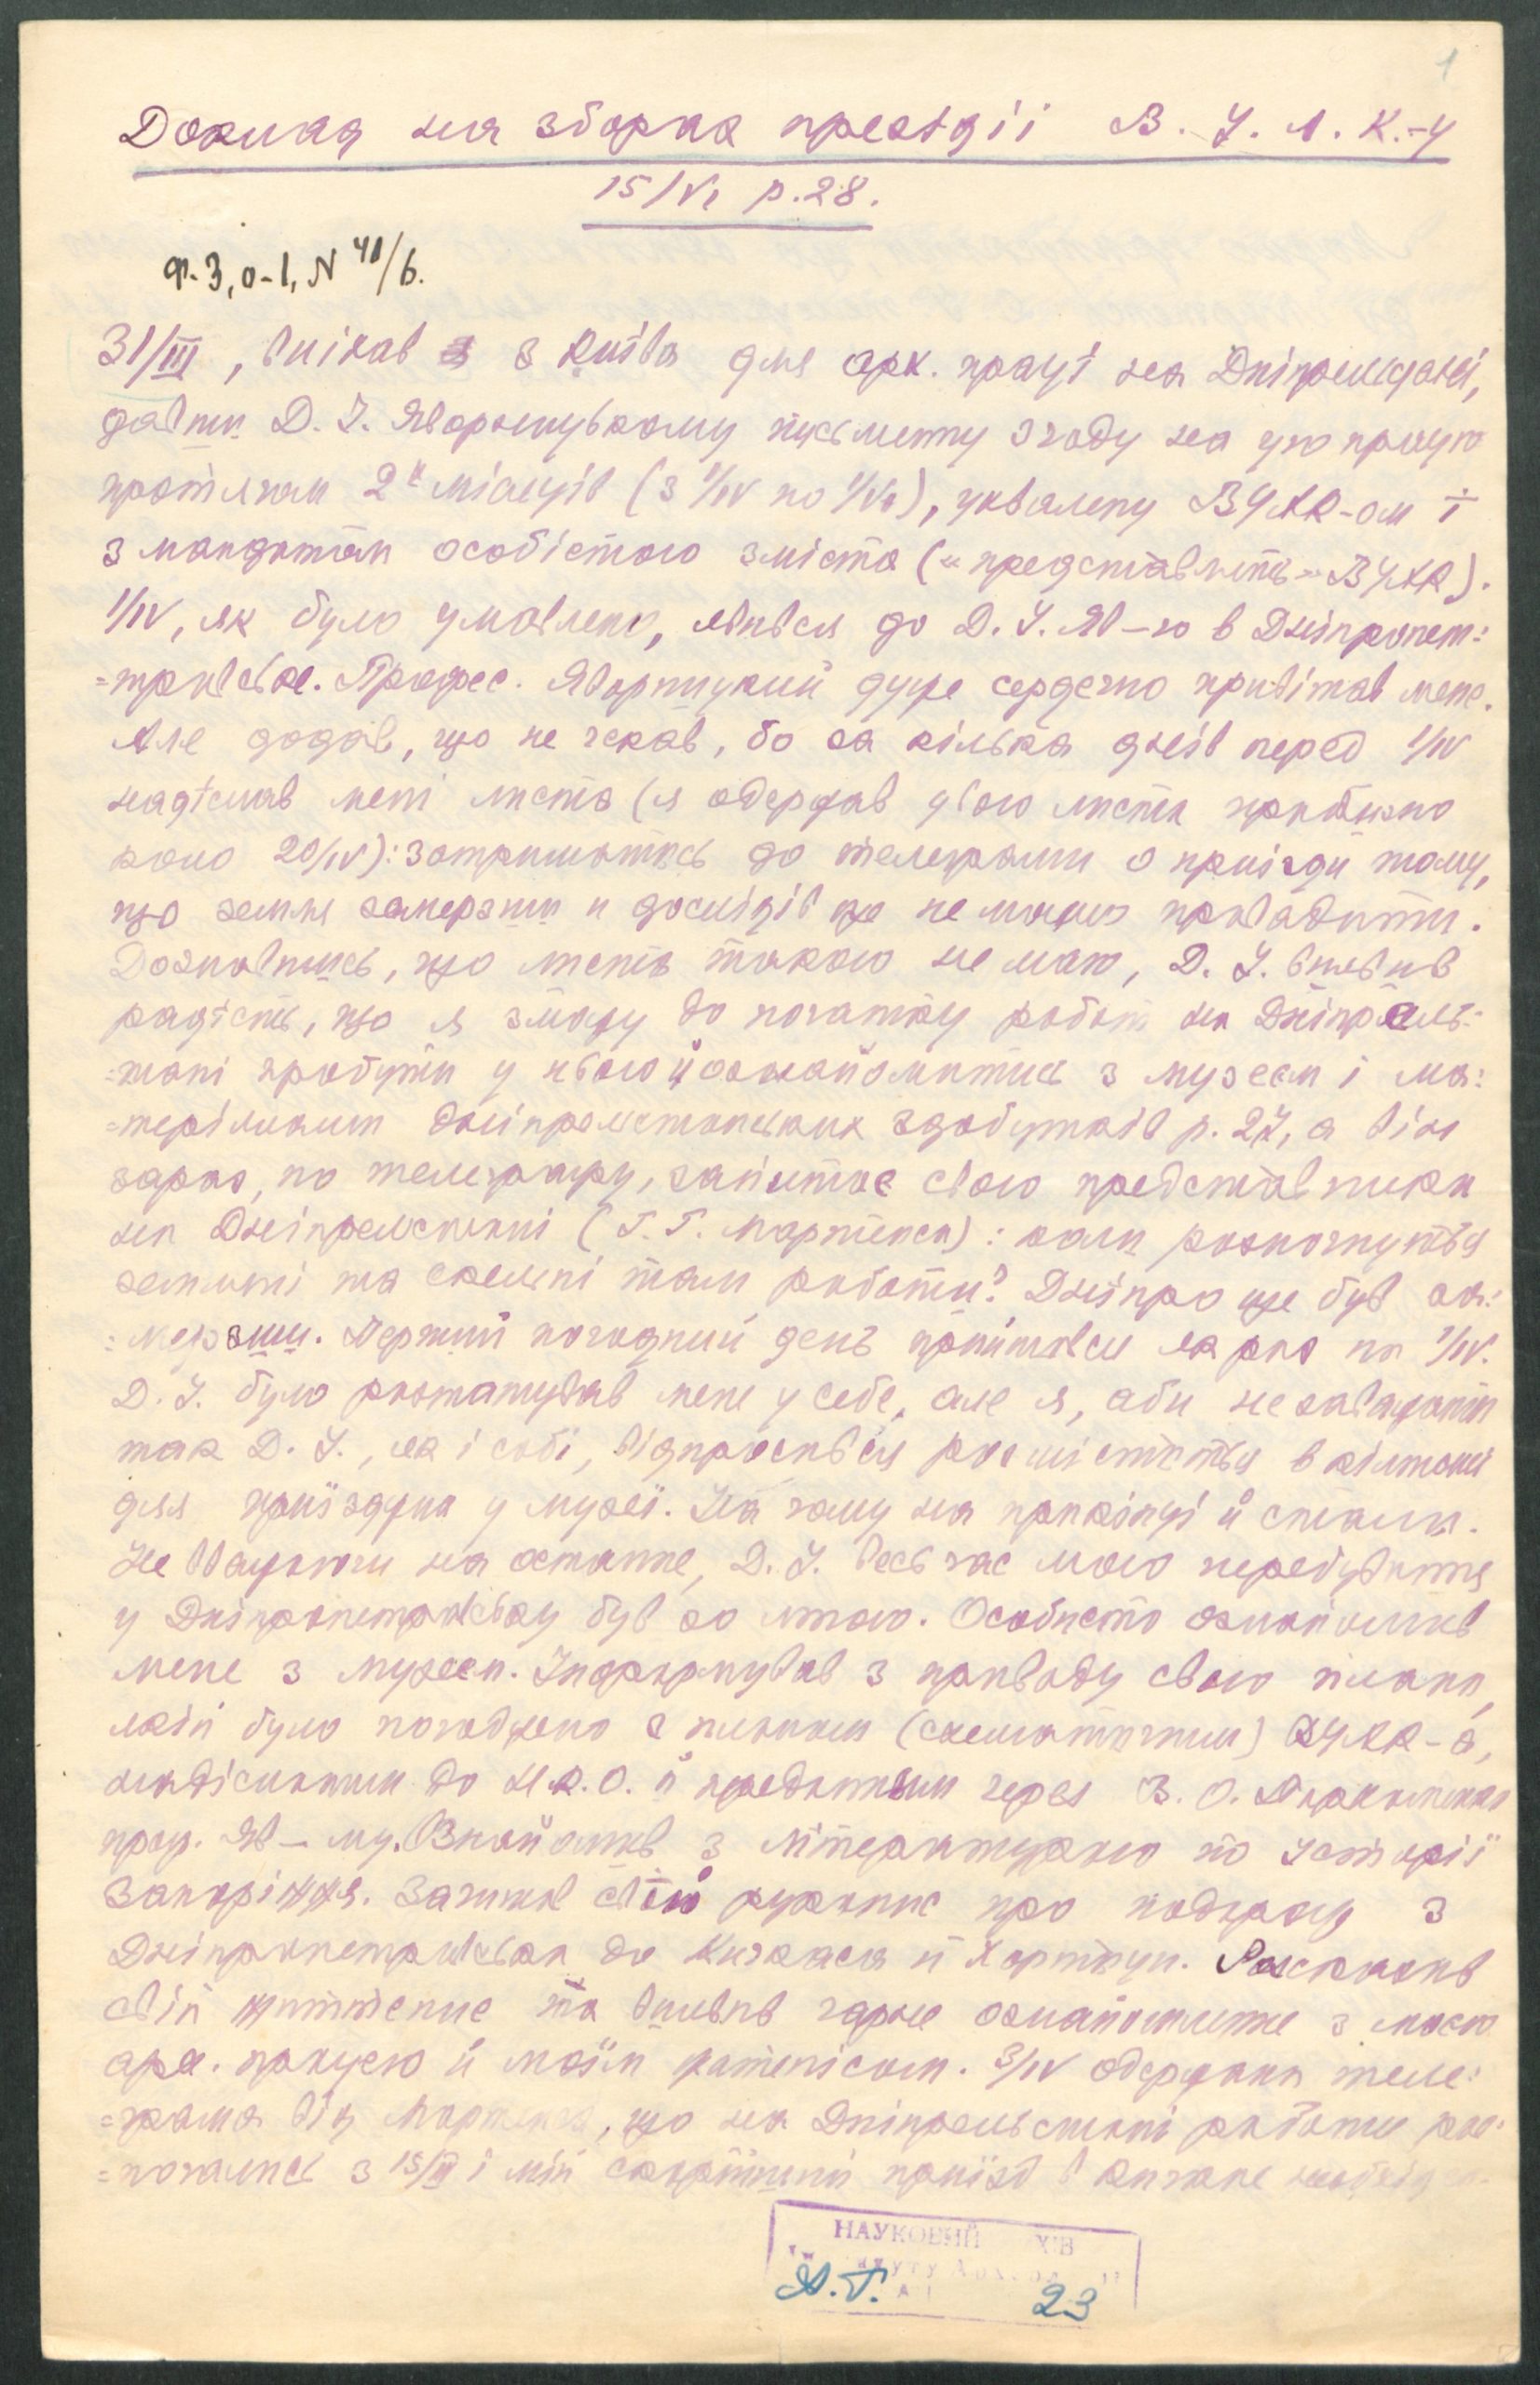 1
Доклад на зборах президії В. У. А. К.-у
15/VI р. 28.
Ф-3, о-1, N 41/6.
31/III, виїхав з Київа для арх. праці на Дніпрельстані,
давши Д. І. Яворницькому письменну згоду на цю працю
протягом 2х місяців (з 1/IV по 1/VI), ухвалену ВУАК-ом і
з мандатом особістого змісту („представитель" ВУАК).
1/IV, як було умовлено, явився до Д. І. Яв–го в Дніпропет:
=тровське. Професс. Яворницкий дуже сердечно привітав мене.
Але додав, що не чекав, бо за кілька днів перед 1/IV
надіслав мені листа (я одержав цього листа приблизно
коло 20/IV): затриматись до телеграми о приїзди тому,
що земля замерзши и дослідів ще не можно провадити.
Дознавшись, що листа такого не маю, Д. І. виявив
радість, що я зможу до початку робот на Дніпрель:
=стані пробути у нього й ознайомитись з музеєм і ма:
=теріялами дніпрельстанських здобутків р. 27, а він
зараз, по телеграфу, запитає свого представника
на Дніпрельстані (Г. Г. Мартенса): коли розпочнуться
земляні та скельні там роботи? Дніпро ще був за:
=мерзши. Перший погодний день трапився якраз на 1/IV.
Д. І. було розташував мене у себе, але я, аби не заважати
так Д. І., як і собі, відпросився розміститься в кімнаті
для приїздчих у музеї. На чому на прикінці й стали.
Не вважаючи на останнє, Д. І. весь час мого перебування
у Дніпропетровську був зо мною. Особисто ознайомив
мене з музеєм. Інформував з приводу свого плана,
якій було погоджено з планом (схематичним) ВУАК-а,
надісланим до Н.К.О. й преданным через В. О.
проф. Яв–му. Ознайомив з літературою по Історії
Запоріжжя. Зачитав свій рукопис про подорож з
Дніпропетровська до Кичкаса й Хортиці. Розказав
свій життєпис та виявив гарне ознайомлення з моєю
арх. працею й моїм життєписом. 3/IV одержана теле:
=грама від Мартенса, що на Дніпрельстані роботи роз:
=почались з 15/III і мій скорішший приїзд в Кичкас
НАУКОВИЙ АРХІВ
А.Г. 23